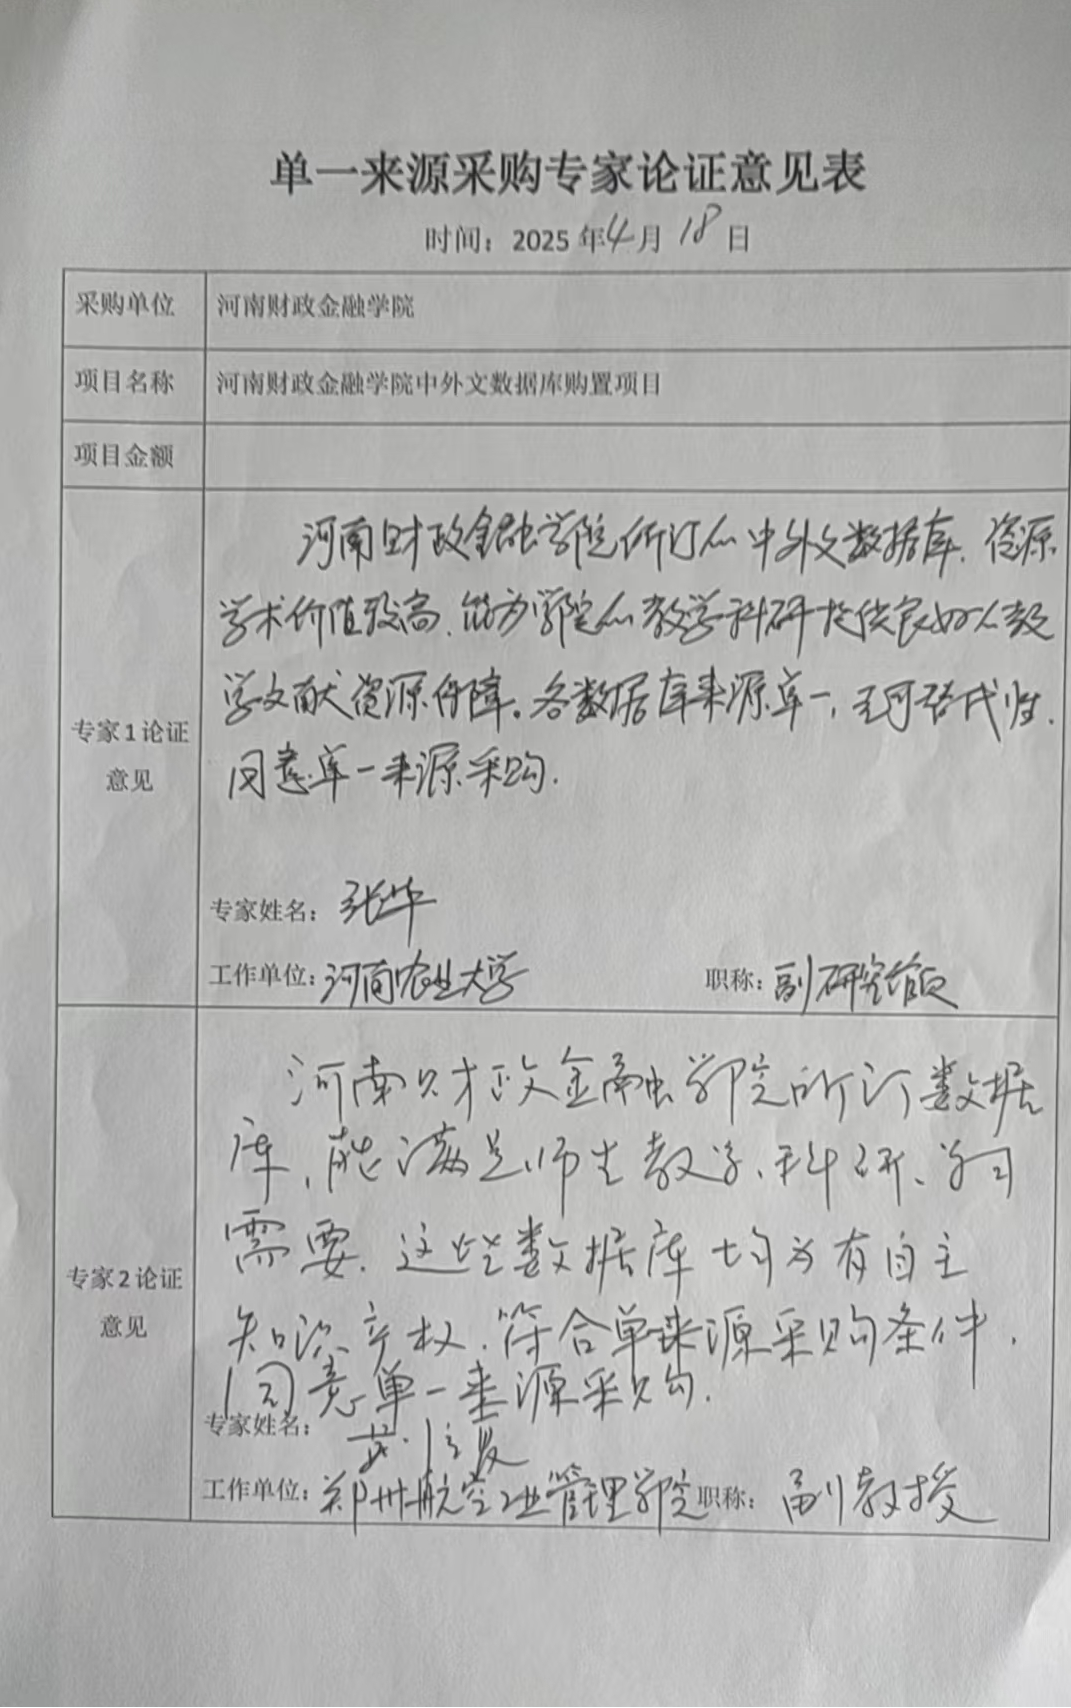 单一来源采购专家论证意见表
时间：2025年4月18日
采购单位 河南财政金融学院
项目名称 河南财政金融学院中外文数据库购置项目
项目金额
专家1论证意见
河南财政金融学院所订的中外文数据库，资源
学术价值较高，能为学院的教学科研提供良好的教
学文献资源保障。各数据库来源单一，无可替代性，
同意单一来源采购.
专家姓名：张华
工作单位：河南农业大学 职称：副研究馆员
专家2论证意见
河南财政金融学院所订数据
库，能满足师生教学、科研、学习
需要，这些数据库均为有自主
知识产权，符合单一来源采购条件，
同意单一来源采购.
专家姓名：
工作单位：郑州航空工业管理学院 职称：副教授